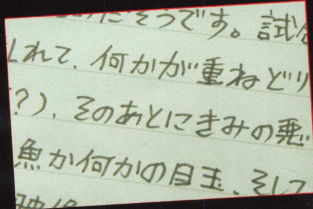 のだそうです。試
れて、何かが重ねどり
?)、そのあとにきみの悪
魚か何かの目玉、そして
映像